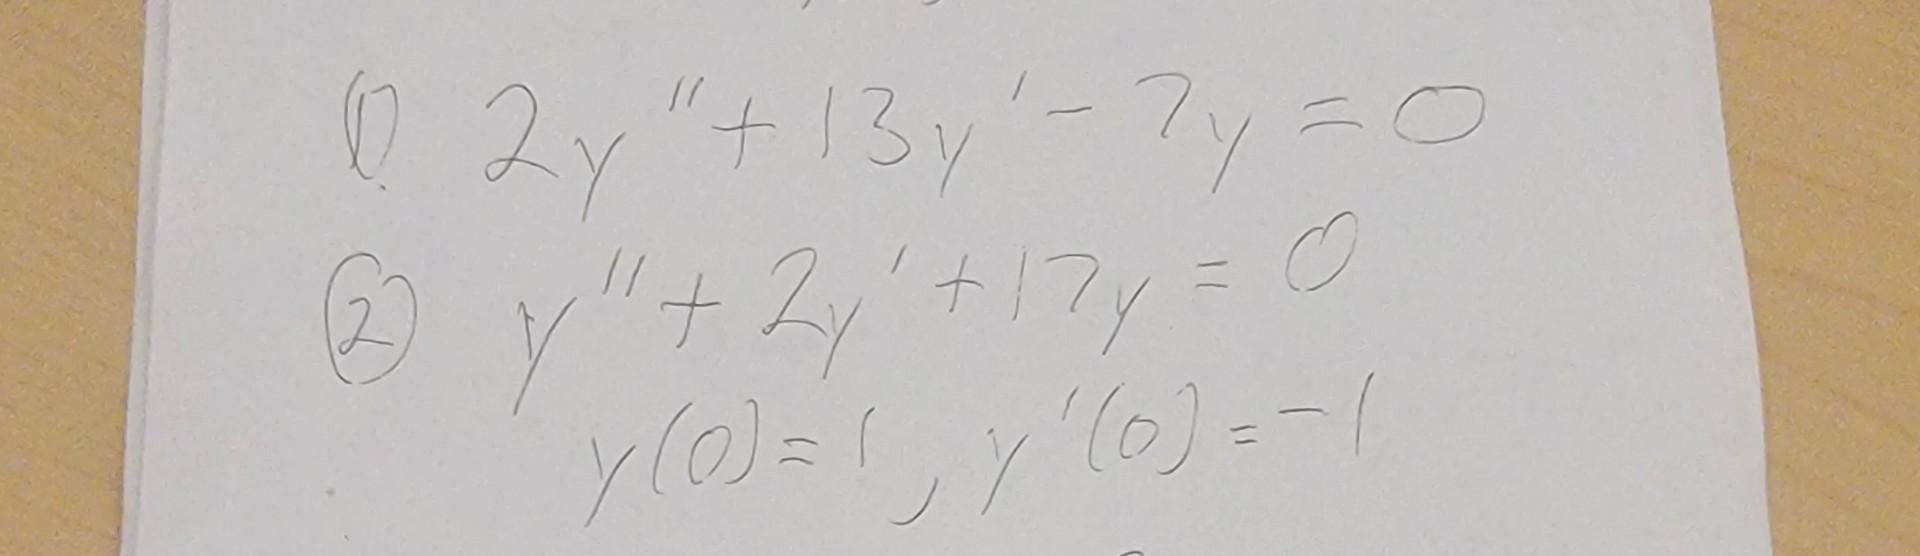 ① 2y'' + 13y' - 7y = 0
② y'' + 2y' + 17y = 0
y(0) = 1, y'(0) = -1